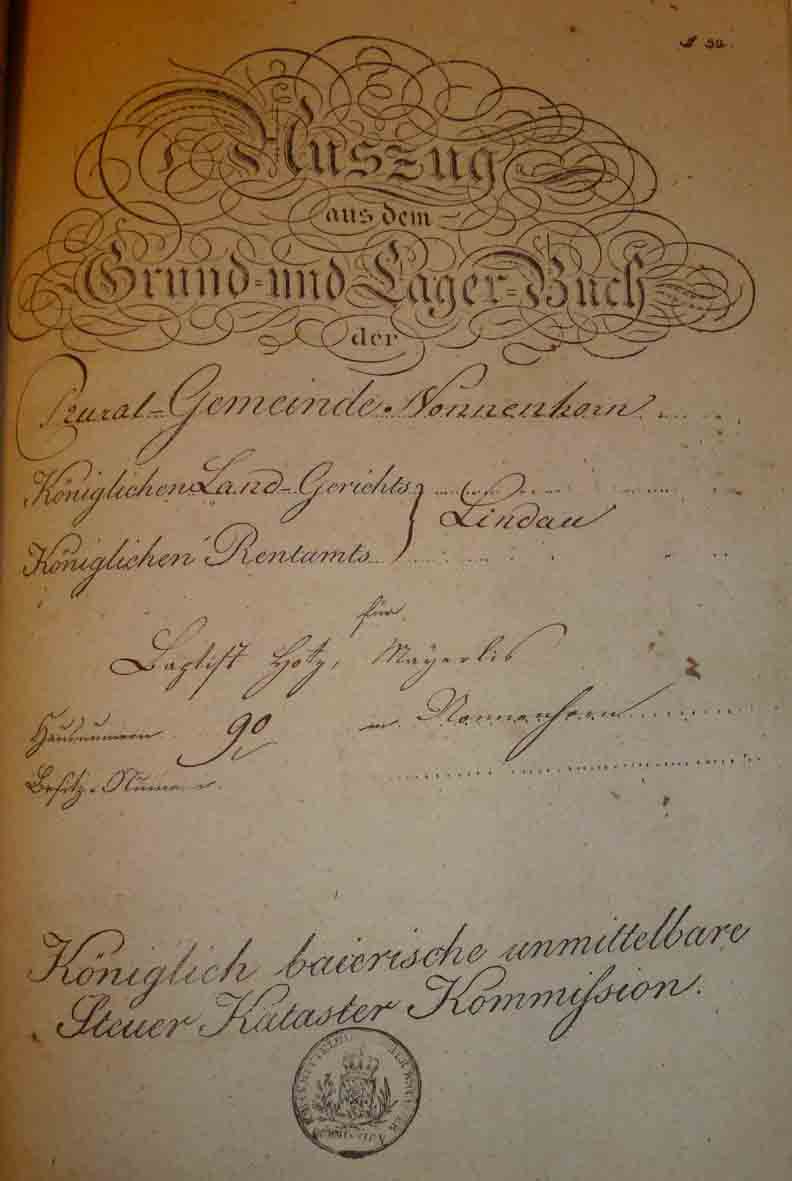 Auszug
aus dem
Grund- und Lager-Buch
der
Rural-Gemeinde Nonnenhorn
Königlichen Land-Gerichts } Lindau
Königlichen Rentamts
für
Baptist Hotz, Mayerlis
Hausnumern 90 in Nonnenhorn
Besitz-Numern
Königlich baierische unmittelbare
Steuer Kataster Kommißion.